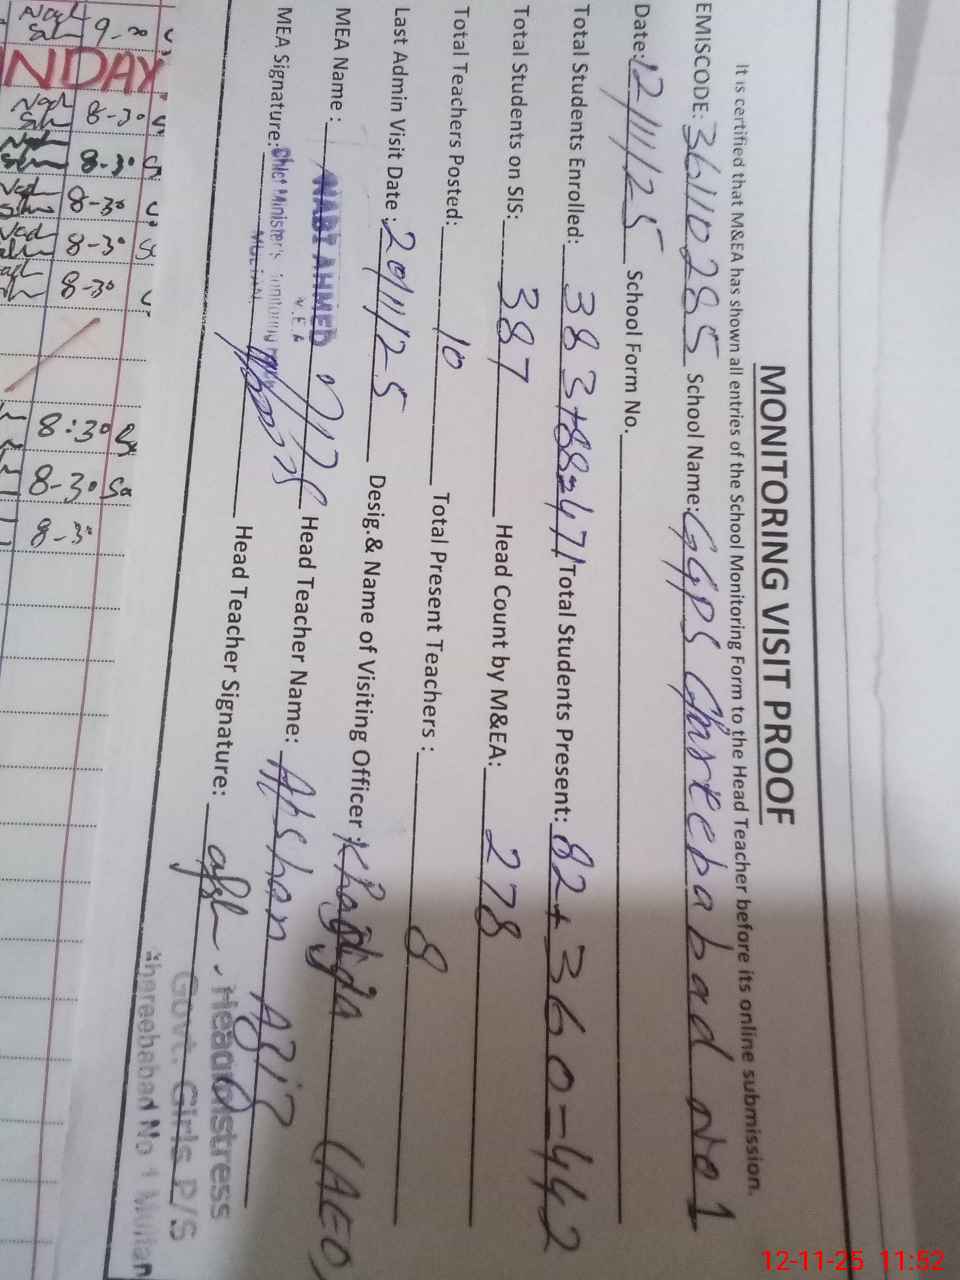 MONITORING VISIT PROOF
It is certified that M&EA has shown all entries of the School Monitoring Form to the Head Teacher before its online submission.
EMISCODE: 36110285 School Name: GGPS Ghareebabad No 1
Date: 12/11/25 School Form No.
Total Students Enrolled: 383+88=471 Total Students Present: 82+360=442
Total Students on SIS: 387 Head Count by M&EA: 278
Total Teachers Posted: 10 Total Present Teachers : 8
Last Admin Visit Date : 20/11/25 Desig.& Name of Visiting Officer : Khadija (AEO)
MEA Name : NABI AHMED Head Teacher Name: Afshan Aziz
M.E.A
MEA Signature: Chief Minister's Monitoring Head Teacher Signature:
MULTAN
Headmistress
Govt. Girls P/S
Ghareebabad No 1 Multan
9-30
NDAY
8-30
8-30
8-30
8-30
8-30
8:30
8-30
8-30
12-11-25 11:52